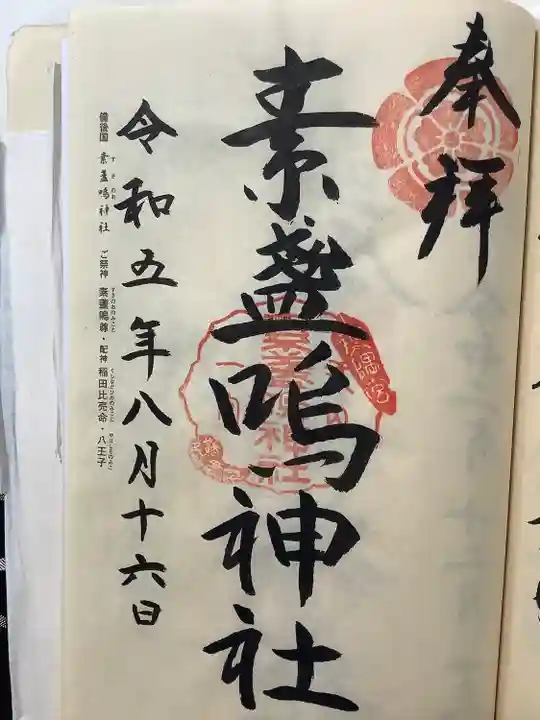 奉拝
素盞嗚神社
令和五年八月十六日
備後国 素盞嗚神社 ご祭神 素盞嗚尊・配神 稲田比売命・八王子